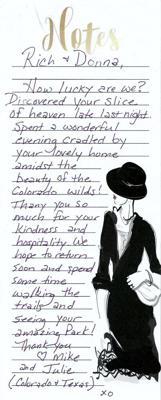 Notes
Rich & Donna,
How lucky are we?
Discovered your slice
of heaven late last night.
Spent a wonderful
evening cradled by
your lovely home
amidst the
beauty of the
Colorado wilds!
Thany you so
much for your
Kindness and
hospitality. We
hope to return
soon and spend
some time
walking the
trails and
seeing your
amazing Park!
Thank you
♡ Mike
and Julie
(Colorado & Texas)
xo